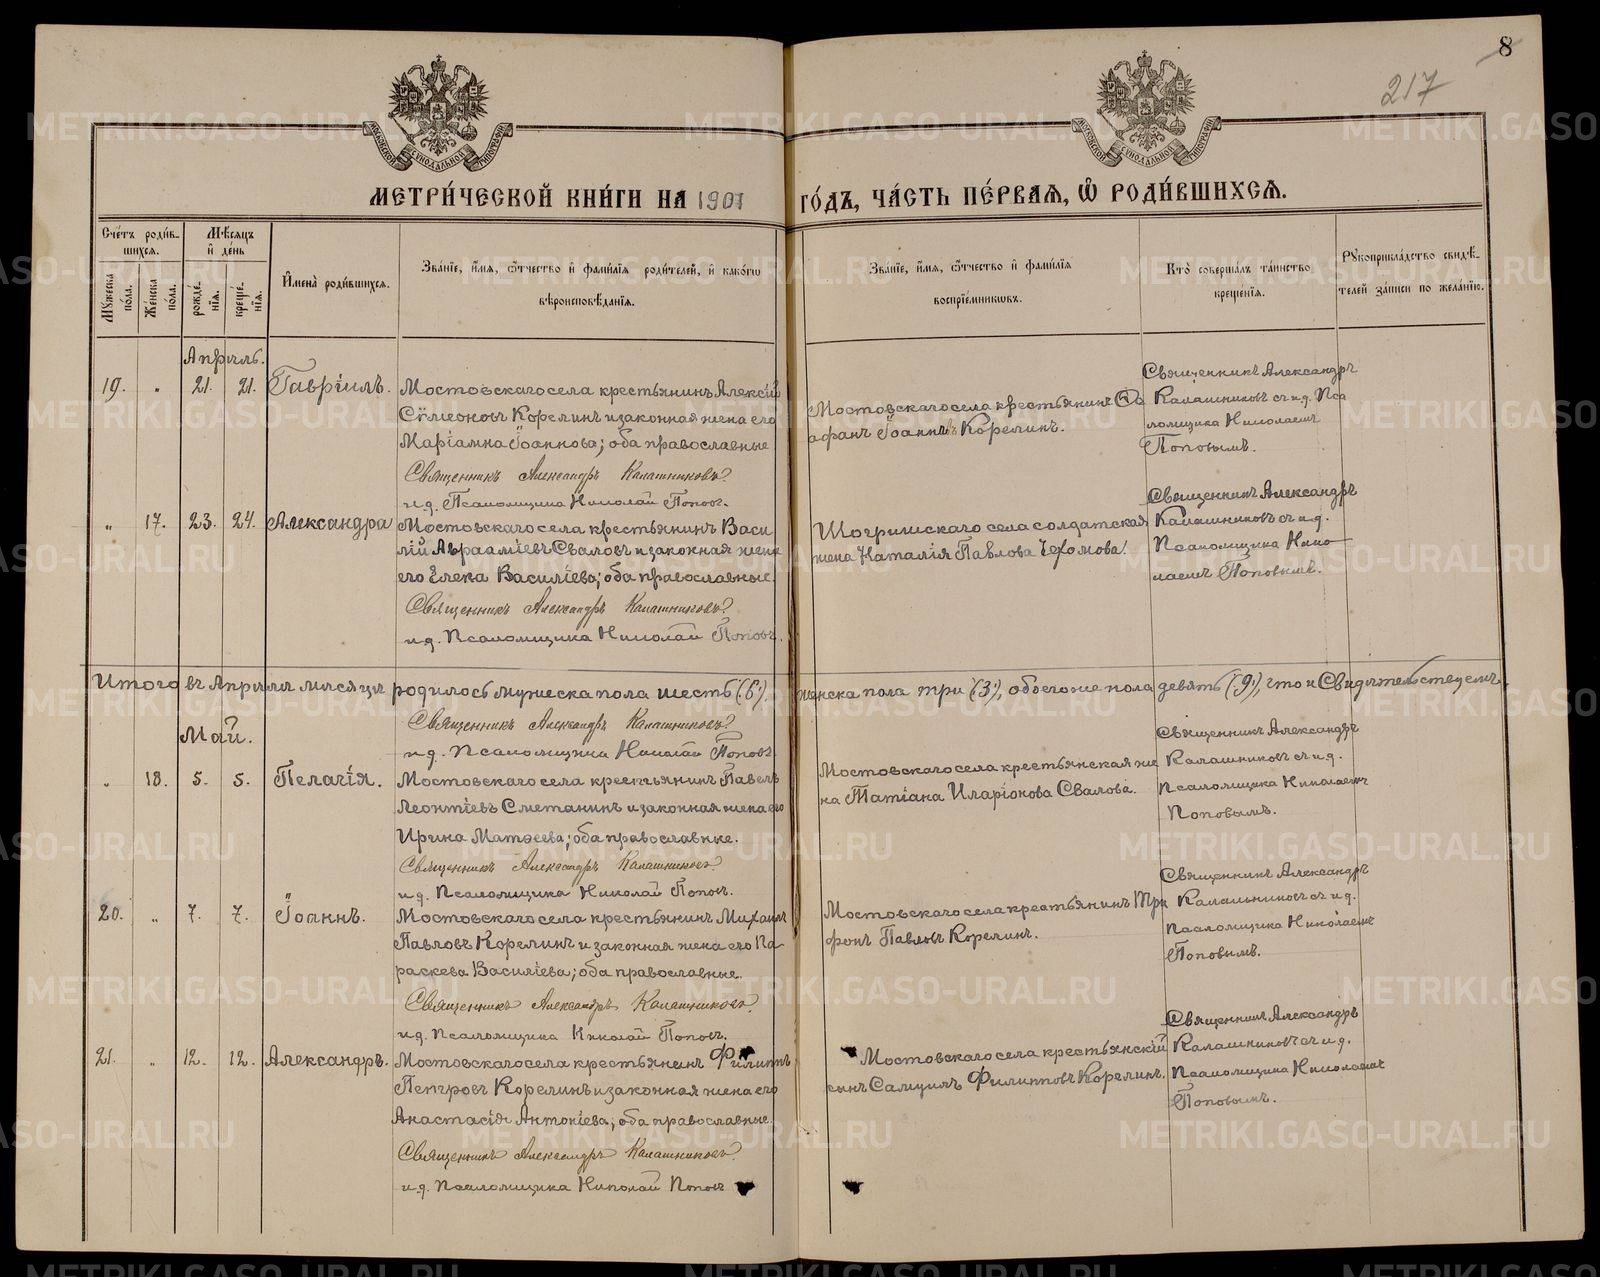 8
217
МЕТРИ́ЧЕСКОЙ КНИ́ГИ НА 1901 ГО́ДЪ, ЧА́СТЬ ПЕ́РВАЯ, Ѡ҆ РОДИ́ВШИХСЯ.
Сче́тъ роди́в-
шихся.
Мѣ́сяцъ
и҆ де́нь
Мꙋ́жеска
по́ла.
Же́нска
по́ла.
рожде́-
нїѧ.
креще́-
нїѧ.
И҆мена̀ роди́вшихся.
Зва́нїе, и҆́мя, ѻ҆́тчество и҆ фами́лїя роди́телей, и҆ како́гѡ
вѣроисповѣ́данїя.
Зва́нїе, и҆́мя, ѻ҆́тчество и҆ фами́лїя
воспрїе́мникѡвъ.
Кто̀ соверша́лъ та́инство
креще́нїя.
Рꙋкоприкла́дство свидѣ́-
телей за́писи по жела́нїю.
Апрѣль.
19. „ 21. 21. Гавріилъ.
Мостовскаго села крестьянинъ Алексій
Симеоновъ Корелинъ и законная жена его
Маріамна Іоаннова; оба православные
Священникъ Александръ Калашниковъ
и.д. Псаломщика Николай Поповъ.
Мостовскаго села крестьянинъ
Іоанновъ Корелинъ.
Священникъ Александръ
Калашниковъ съ и.д. Пса
ломщика Николаемъ
Поповымъ.
„ 17. 23. 24. Александра
Мостовскаго села крестьянинъ Васи
лій Авраамiевъ Сваловъ и законная жена
его Елена Василіева; оба православные.
Священникъ Александръ Калашниковъ
и.д. Псаломщика Николай Поповъ.
Шогринскаго села солдатская
жена Наталія Павлова
Священникъ Александръ
Калашниковъ съ и.д.
Псаломщика Нико
лаемъ Поповымъ.
Итого въ Апрѣлѣ мѣсяцѣ родилось мужеска пола шесть (6), женска пола три (3), обоего же пола девять (9), что и Свидѣтельствуемъ.
Священникъ Александръ Калашниковъ
и.д. Псаломщика Николай Поповъ
Май.
„ 18. 5. 5. Пелагія.
Мостовскаго села крестьянинъ Павелъ
Леонтіевъ Сметанинъ и законная жена его
Ирина Матѳеева; оба православные.
Священникъ Александръ Калашниковъ
и.д. Псаломщика Николай Поповъ.
Мостовскаго села крестьянская же
на Татіана Иларіонова Свалова.
Священникъ Александръ
Калашниковъ съ и.д.
Псаломщика Николаемъ
Поповымъ.
20. „ 7. 7. Іоаннъ.
Мостовскаго села крестьянинъ Михаилъ
Павловъ Корелинъ и законная жена его Па
раскева Василіева; оба православные.
Священникъ Александръ Калашниковъ
и.д. Псаломщика Николай Поповъ.
Мостовскаго села крестьянинъ Три
фонъ Павловъ Корелинъ.
Священникъ Александръ
Калашниковъ съ и.д.
Псаломщика Николаемъ
Поповымъ.
21. „ 12. 12. Александръ.
Мостовскаго села крестьянинъ Филиппъ
Петровъ Корелинъ и законная жена его
Анастасія Антоніева; оба православные.
Священникъ Александръ Калашниковъ
и.д. Псаломщика Николай Поповъ
Мостовскаго села крестьянскій
сынъ Самуилъ Филипповъ Корелинъ.
Священникъ Александръ
Калашниковъ съ и.д.
Псаломщика Николаемъ
Поповымъ.
METRIKI.GASO-URAL.RU